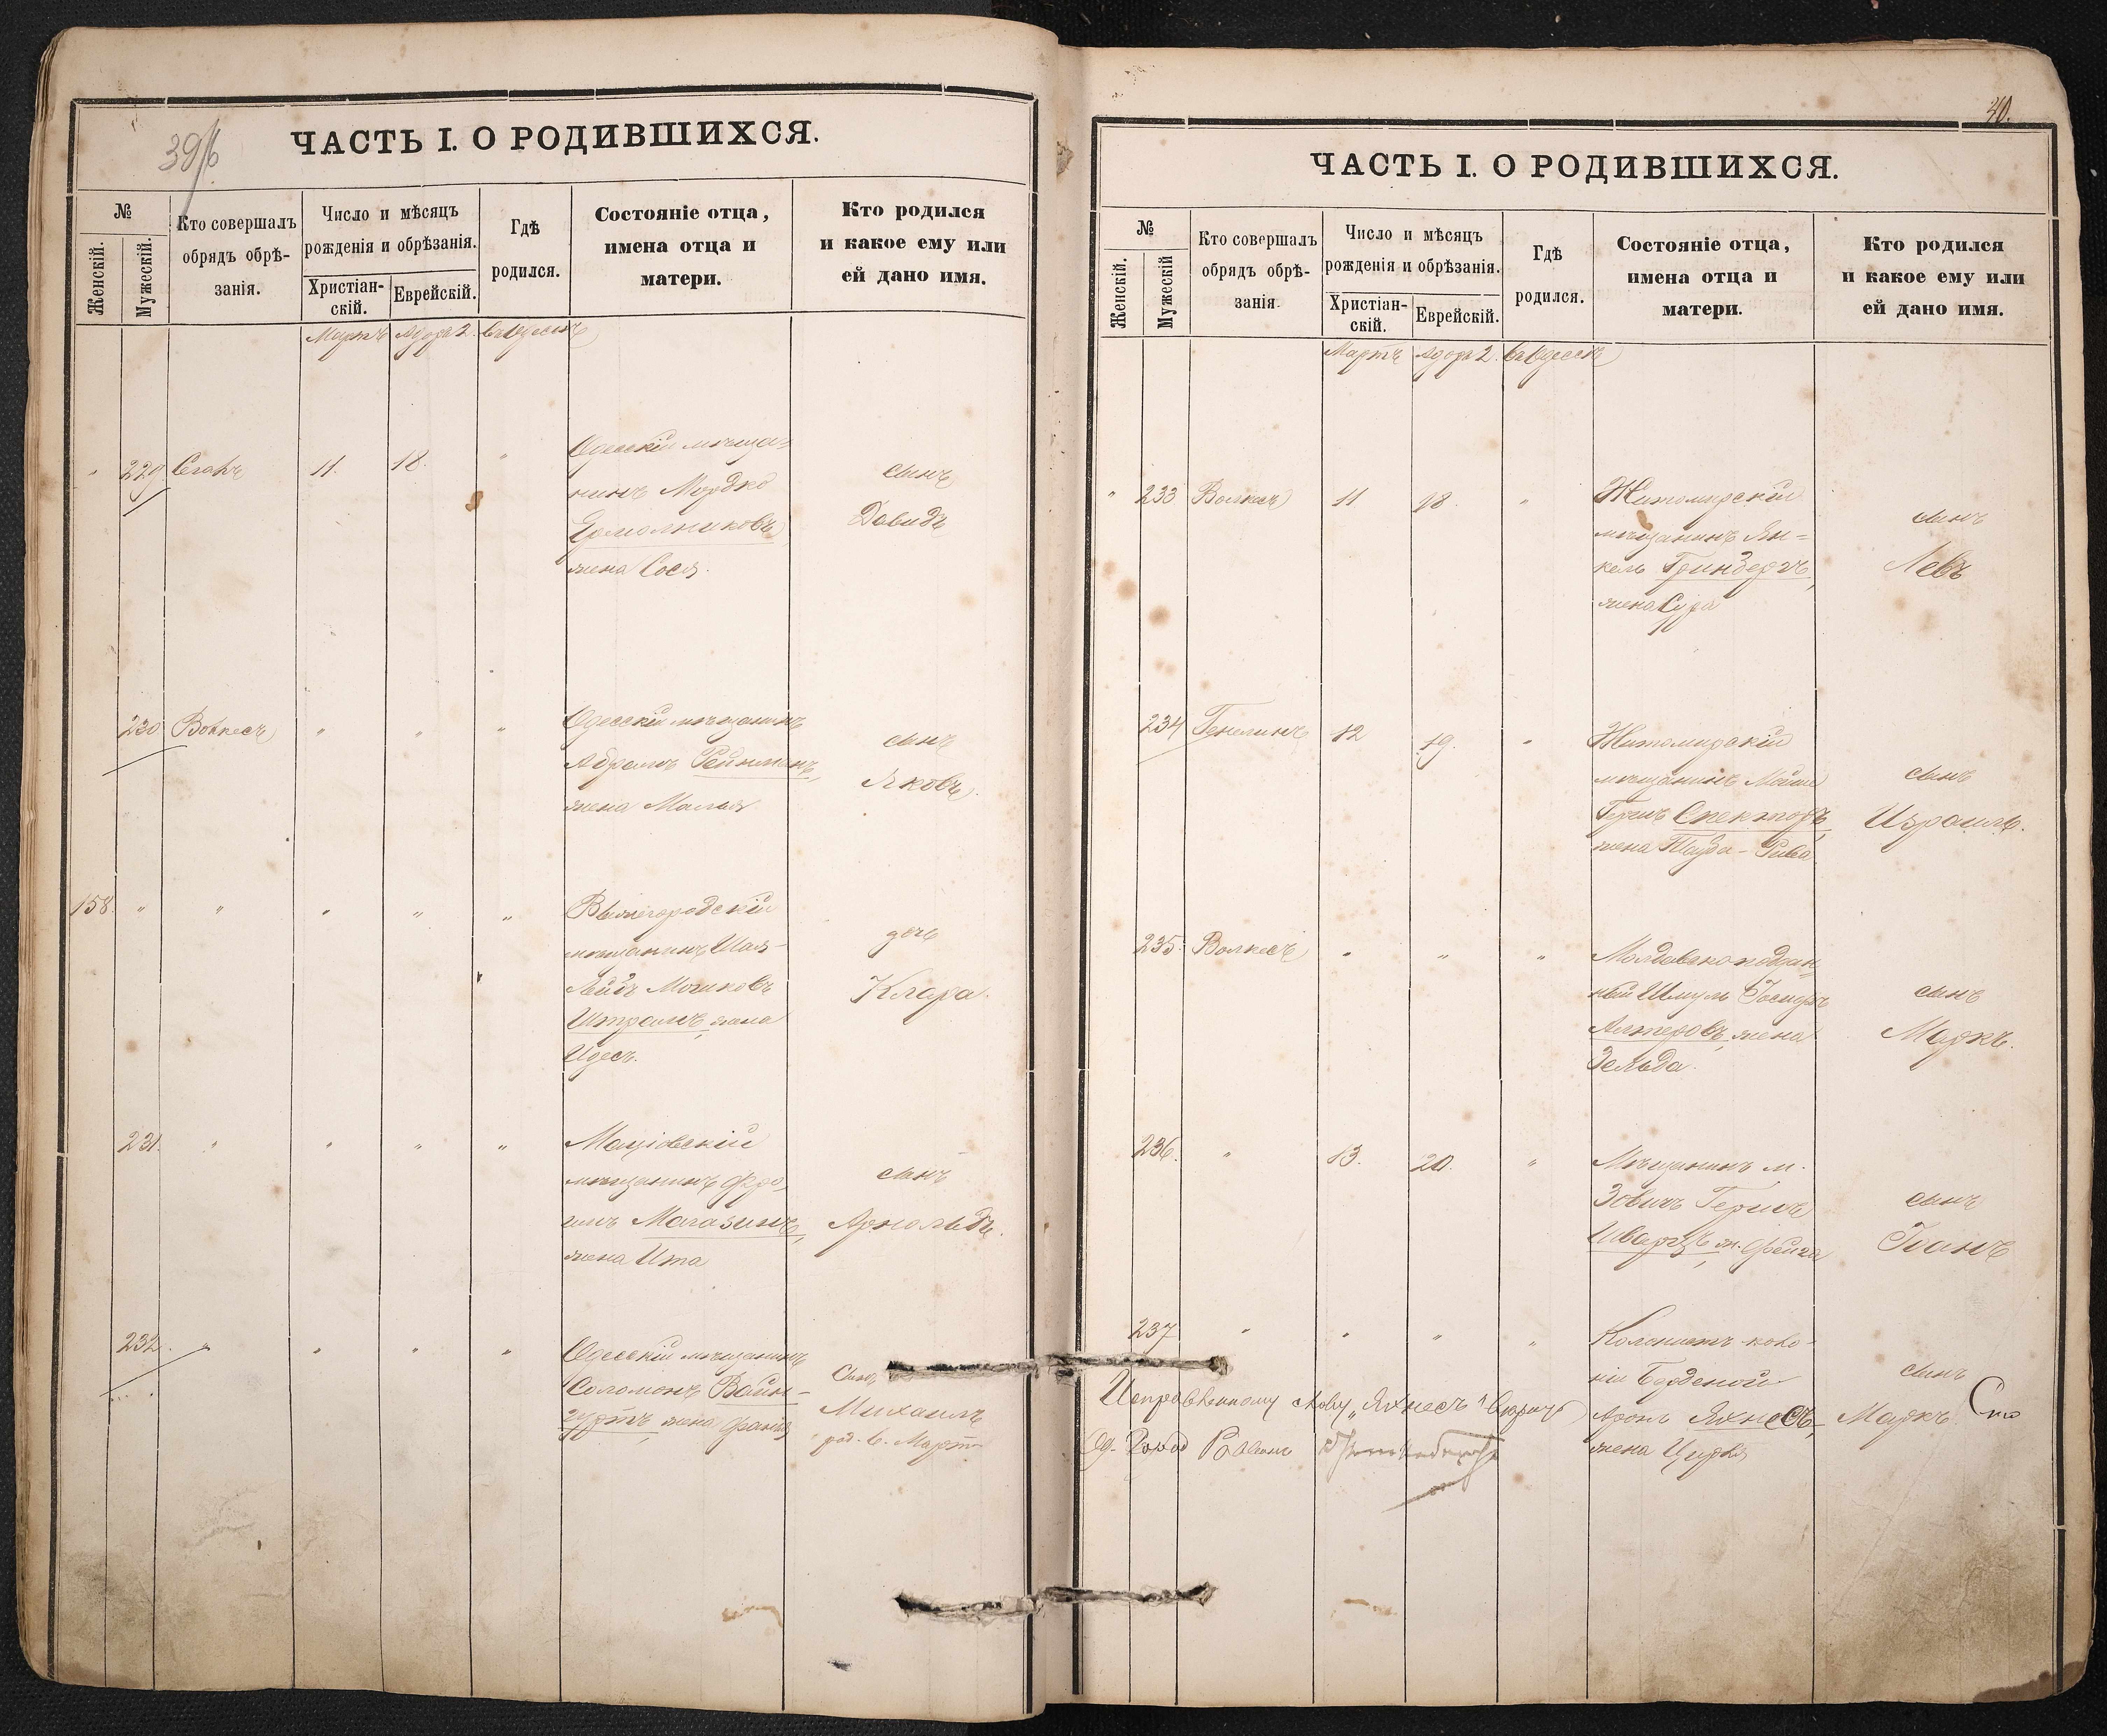 39/б
ЧАСТЬ I. О РОДИВШИХСЯ.
№
Женскій.
Мужескій.
Кто совершалъ
обрядъ обрѣ-
занія.
Число и мѣсяцъ
рожденія и обрѣзанія.
Христіан-
скій.
Еврейскій.
Гдѣ
родился.
Состояніе отца,
имена отца и
матери.
Кто родился
и какое ему или
ей дано имя.
Мартъ Адара 2. въ Одессѣ
" 229 11. 18. "
Одесскій мѣща-
нинъ Мордко
Ермолниковъ,
жена Сося.
сынъ
Давидъ
230 Волкесъ " " "
Одесскій мѣщанинъ
Абрамъ Рейнманъ,
жена Малья
сынъ
Яковъ.
158. " " " " "
Вышегородскій
мѣщанинъ Шая-
Лейбъ Мошковъ
Штраимъ, жена
Идесъ.
дочь
Клара.
231. " " " "
Маціовскій
мѣщанинъ Фро-
имъ Магазинъ,
жена Ита
сынъ
Арнольдъ.
232. " " " "
Одесскій мѣщанинъ
Соломонъ Вайн-
гуртъ, жена Фаня
Сынъ
Михаилъ
род. 6. Март
40.
ЧАСТЬ I. О РОДИВШИХСЯ.
№
Женскій.
Мужескій
Кто совершалъ
обрядъ обрѣ-
занія.
Число и мѣсяцъ
рожденія и обрѣзанія.
Христіан-
скій.
Еврейскій.
Гдѣ
родился.
Состояніе отца,
имена отца и
матери.
Кто родился
и какое ему или
ей дано имя.
Мартъ Адара 2. въ Одессѣ
" 233 Волкесъ 11 18. "
Житомирскій
мѣщанинъ Ян=
кель Гринбергъ,
жена Сура
сынъ
Левъ
234 Генелинъ 12 19. "
Житомирскій
мѣщанинъ Мойше
Гершъ Спекторъ,
жена Тауба-Рива
сынъ
Израиль.
235. Волкесъ " " "
Молдавскоподдан=
ный Шмуль
Алтеровъ, жена
Зельда.
сынъ
Маркъ.
236. " 13. 20. "
Мѣщанинъ м.
Гершъ
Шварцъ, ж. Фейга
сынъ
237 " " " "
Колонистъ коло-
ніи
Аронъ Яхнесъ,
жена Цирля
сынъ
Маркъ.
Исправленному слову „Яхнесъ"